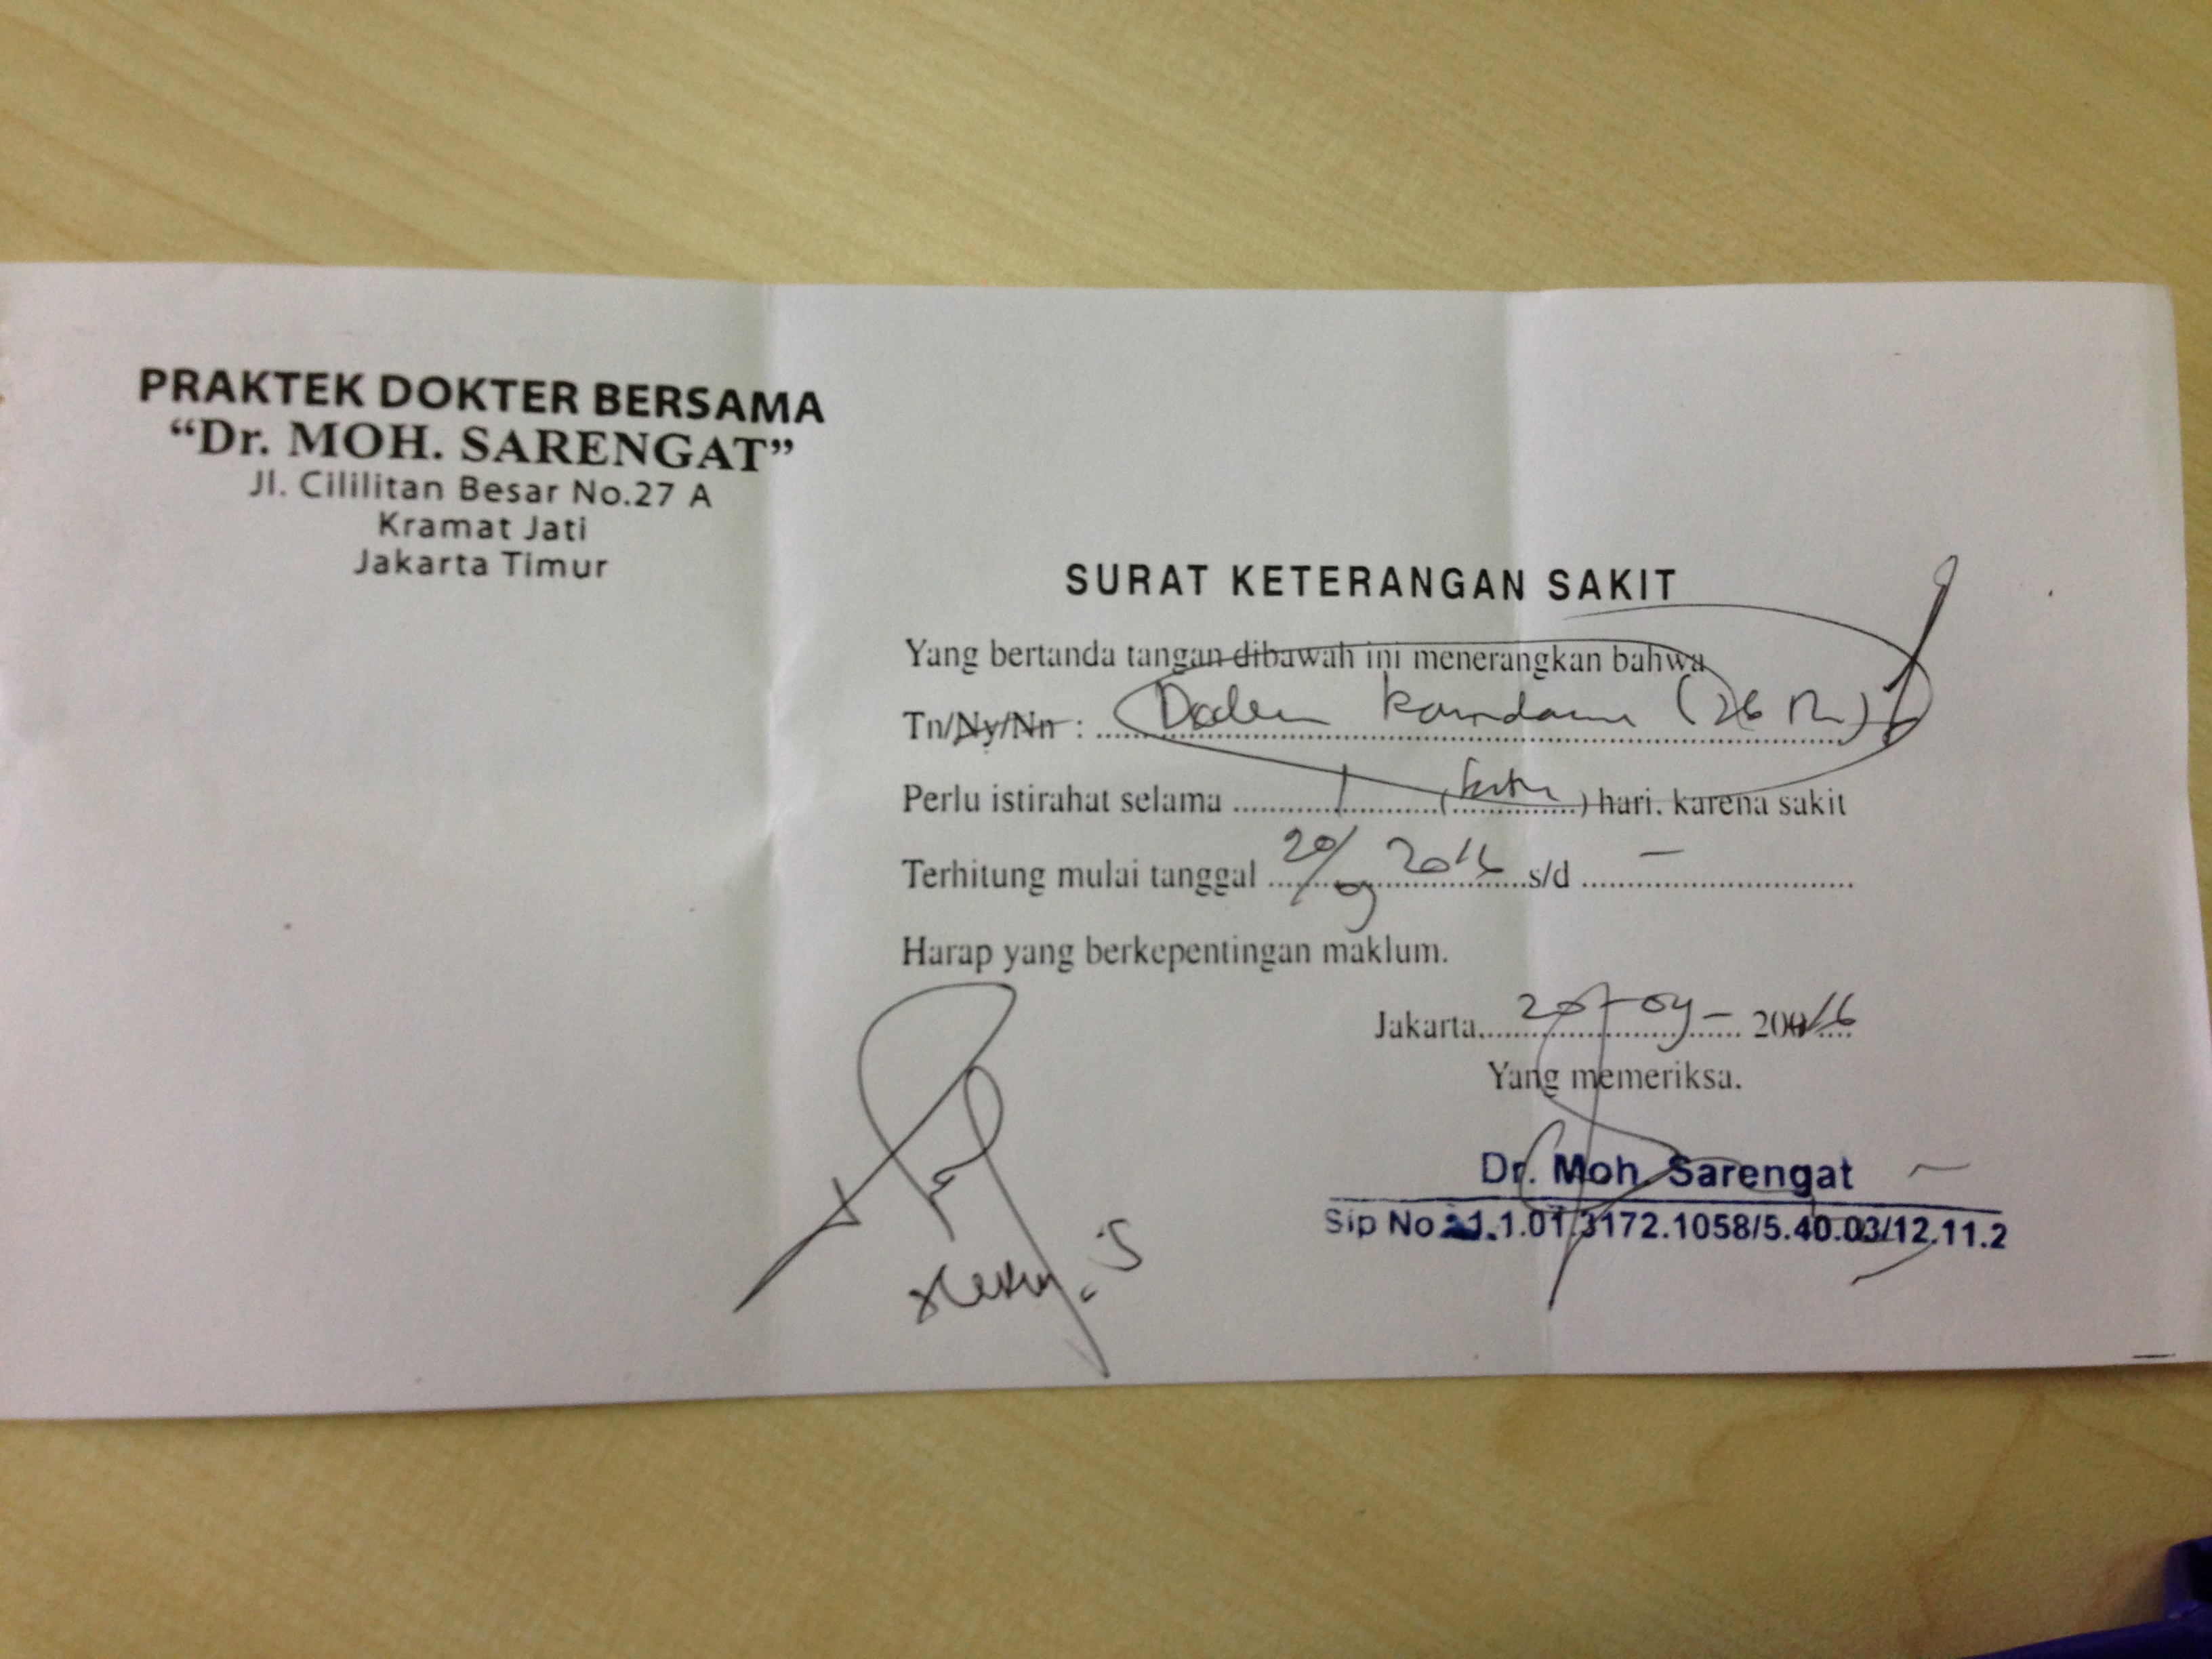 PRAKTEK DOKTER BERSAMA
“Dr. MOH. SARENGAT”
Jl. Cililitan Besar No.27 A
Kramat Jati
Jakarta Timur
SURAT KETERANGAN SAKIT
Yang bertanda tangan dibawah ini menerangkan bahwa
Tn/Ny/Nn : (26 Th)
Perlu istirahat selama 1 (satu) hari. karena sakit
Terhitung mulai tanggal 20/09 2016 s/d –
Harap yang berkepentingan maklum.
Jakarta, 20 - 09 - 2016
Yang memeriksa.
Dr. Moh. Sarengat
Sip No 1.1.01.3172.1058/5.40.03/12.11.2